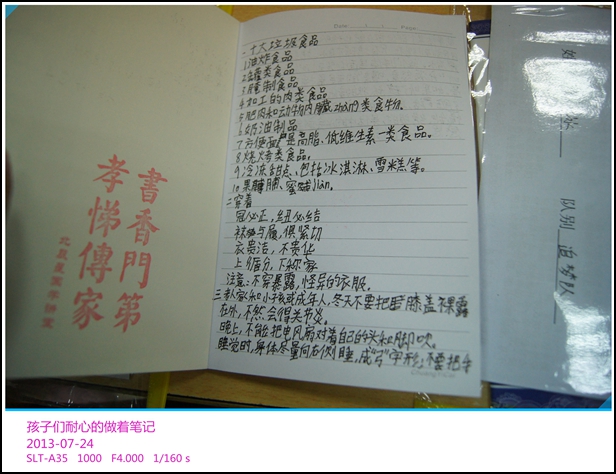 書香門第
孝悌傳家
Date
一十大垃圾食品
1油炸食品
2罐类食品
3腌制食品
4加工的肉类食品
5肥肉和动物内臓类食物
6奶油制品
7方便面是高脂、低维生素一类食品。
8烧烤类食品。
9冷冻甜点、包括冰淇淋、雪糕等。
10果脯、蜜lian。
二穿着
冠必正，纽必结
袜与履，俱紧切
衣贵洁，不贵华
上循分，下称家
注意：不穿暴露，怪异的衣服。
三老人家和小孩或成年人，冬天不要把膝盖裸露
在外，不然会得关节炎。
晚上，不能把电风扇对着自己的头和脚吹。
睡觉时，身体尽量向右侧睡，成"弓"字形；不要把手
队别 追梦队
孩子们耐心的做着笔记
2013-07-24
SLT-A35 1000 F4.000 1/160 s